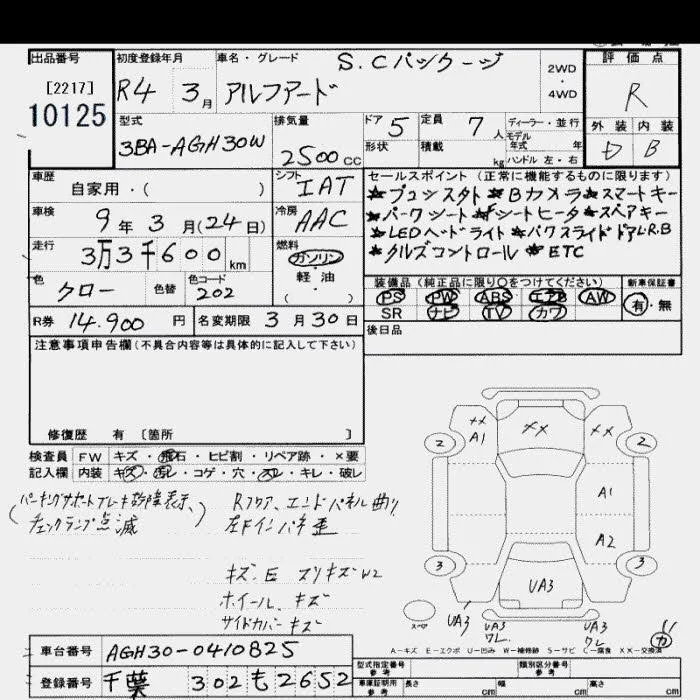 出品番号
[2217]
10125
初度登録年月
R4 3月
車名・グレード
S.Cパッケージ
アルファード
2WD
・
4WD
評価点
R
外装 内装
D B
型式
3BA-AGH30W
排気量
2500cc
ドア 5
形状
定員 7人
積載 kg
ディーラー・並行
モデル
年式 年
ハンドル 左・右
車歴
自家用・( )
シフト
IAT
車検
9年3月(24日)
冷房
AAC
走行
3万3千600km
燃料
ガソリン
・
軽・油
・
( )
色
クロー
色替
色コード
202
セールスポイント(正常に機能するものに限ります)
★プッシュスタート ★Bカメラ ★スマートキー
★パワーシート ★シートヒータ ★スペアキー
★LEDヘッドライト ★パワスライドドアL.R.B
★クルズコントロール ★ETC
装備品(純正品に限り○をつけてください)
PS PW ABS エアB AW
SR ナビ TV カワ
新車保証書
有・無
R券 14.900円
名変期限 3月30日
後日品
注意事項申告欄(不具合内容等は具体的に記入して下さい)
修復歴 有 [箇所 ]
検査員
記入欄
FW キズ・飛石・ヒビ割・リペア跡・×要
内装 キズ・汚レ・コゲ・穴・スレ・キレ・破レ
(パーキングサポートブレーキ故障表示、
チェックランプ点滅)
Rフロア、エンドパネル曲り
左Fインパネ歪
キズ.E スリキズW2
ホイール、キズ
サイドカバーキズ
××
A1
××
××
2
2
A1
A2
3
3
UA3
スペア
UA3
UA3
ワレ.
UA3
ワレ
カ
A-キズ E-エクボ U-凹み W-補修跡 S-サビ C-腐食 XX-交換済
車台番号 AGH30-0410825
登録番号 千葉 302 も 2652
型式指定番号
参考
類別区分番号
参考
車庫証明用
参考
長さ cm
幅 cm
高さ cm